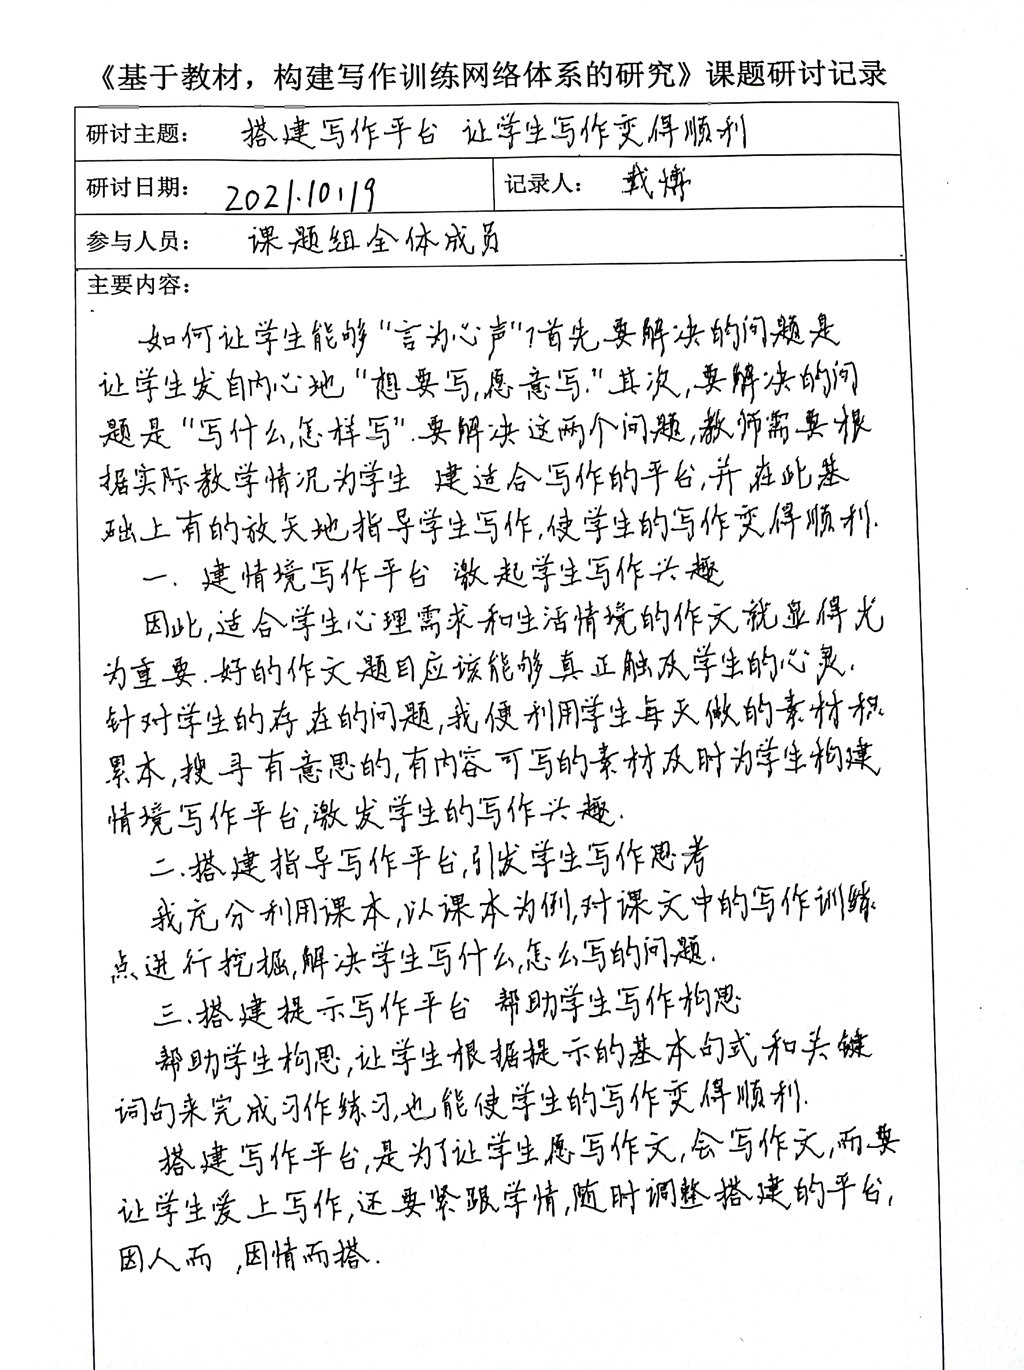 《基于教材，构建写作训练网络体系的研究》课题研讨记录
研讨主题： 搭建写作平台 让学生写作变得顺利
研讨日期： 2021.10.19 记录人： 戴博
参与人员： 课题组全体成员
主要内容：
如何让学生能够“言为心声”?首先,要解决的问题是
让学生发自内心地“想要写,愿意写.”其次,要解决的问
题是“写什么,怎样写”.要解决这两个问题,教师需要根
据实际教学情况为学生 建适合写作的平台,并在此基
础上有的放矢地指导学生写作,使学生的写作变得顺利.
一. 建情境写作平台 激起学生写作兴趣
因此,适合学生心理需求和生活情境的作文就显得尤
为重要.好的作文题目应该能够真正触及学生的心灵.
针对学生的存在的问题,我便利用学生每天做的素材积
累本,搜寻有意思的,有内容可写的素材及时为学生构建
情境写作平台,激发学生的写作兴趣.
二.搭建指导写作平台,引发学生写作思考
我充分利用课本,以课本为例,对课文中的写作训练
点进行挖掘,解决学生写什么,怎么写的问题.
三.搭建提示写作平台 帮助学生写作构思
帮助学生构思,让学生根据提示的基本句式和关键
词句来完成习作练习,也能使学生的写作变得顺利.
搭建写作平台,是为了让学生愿写作文,会写作文,而要
让学生爱上写作,还要紧跟学情,随时调整搭建的平台,
因人而 ,因情而搭.